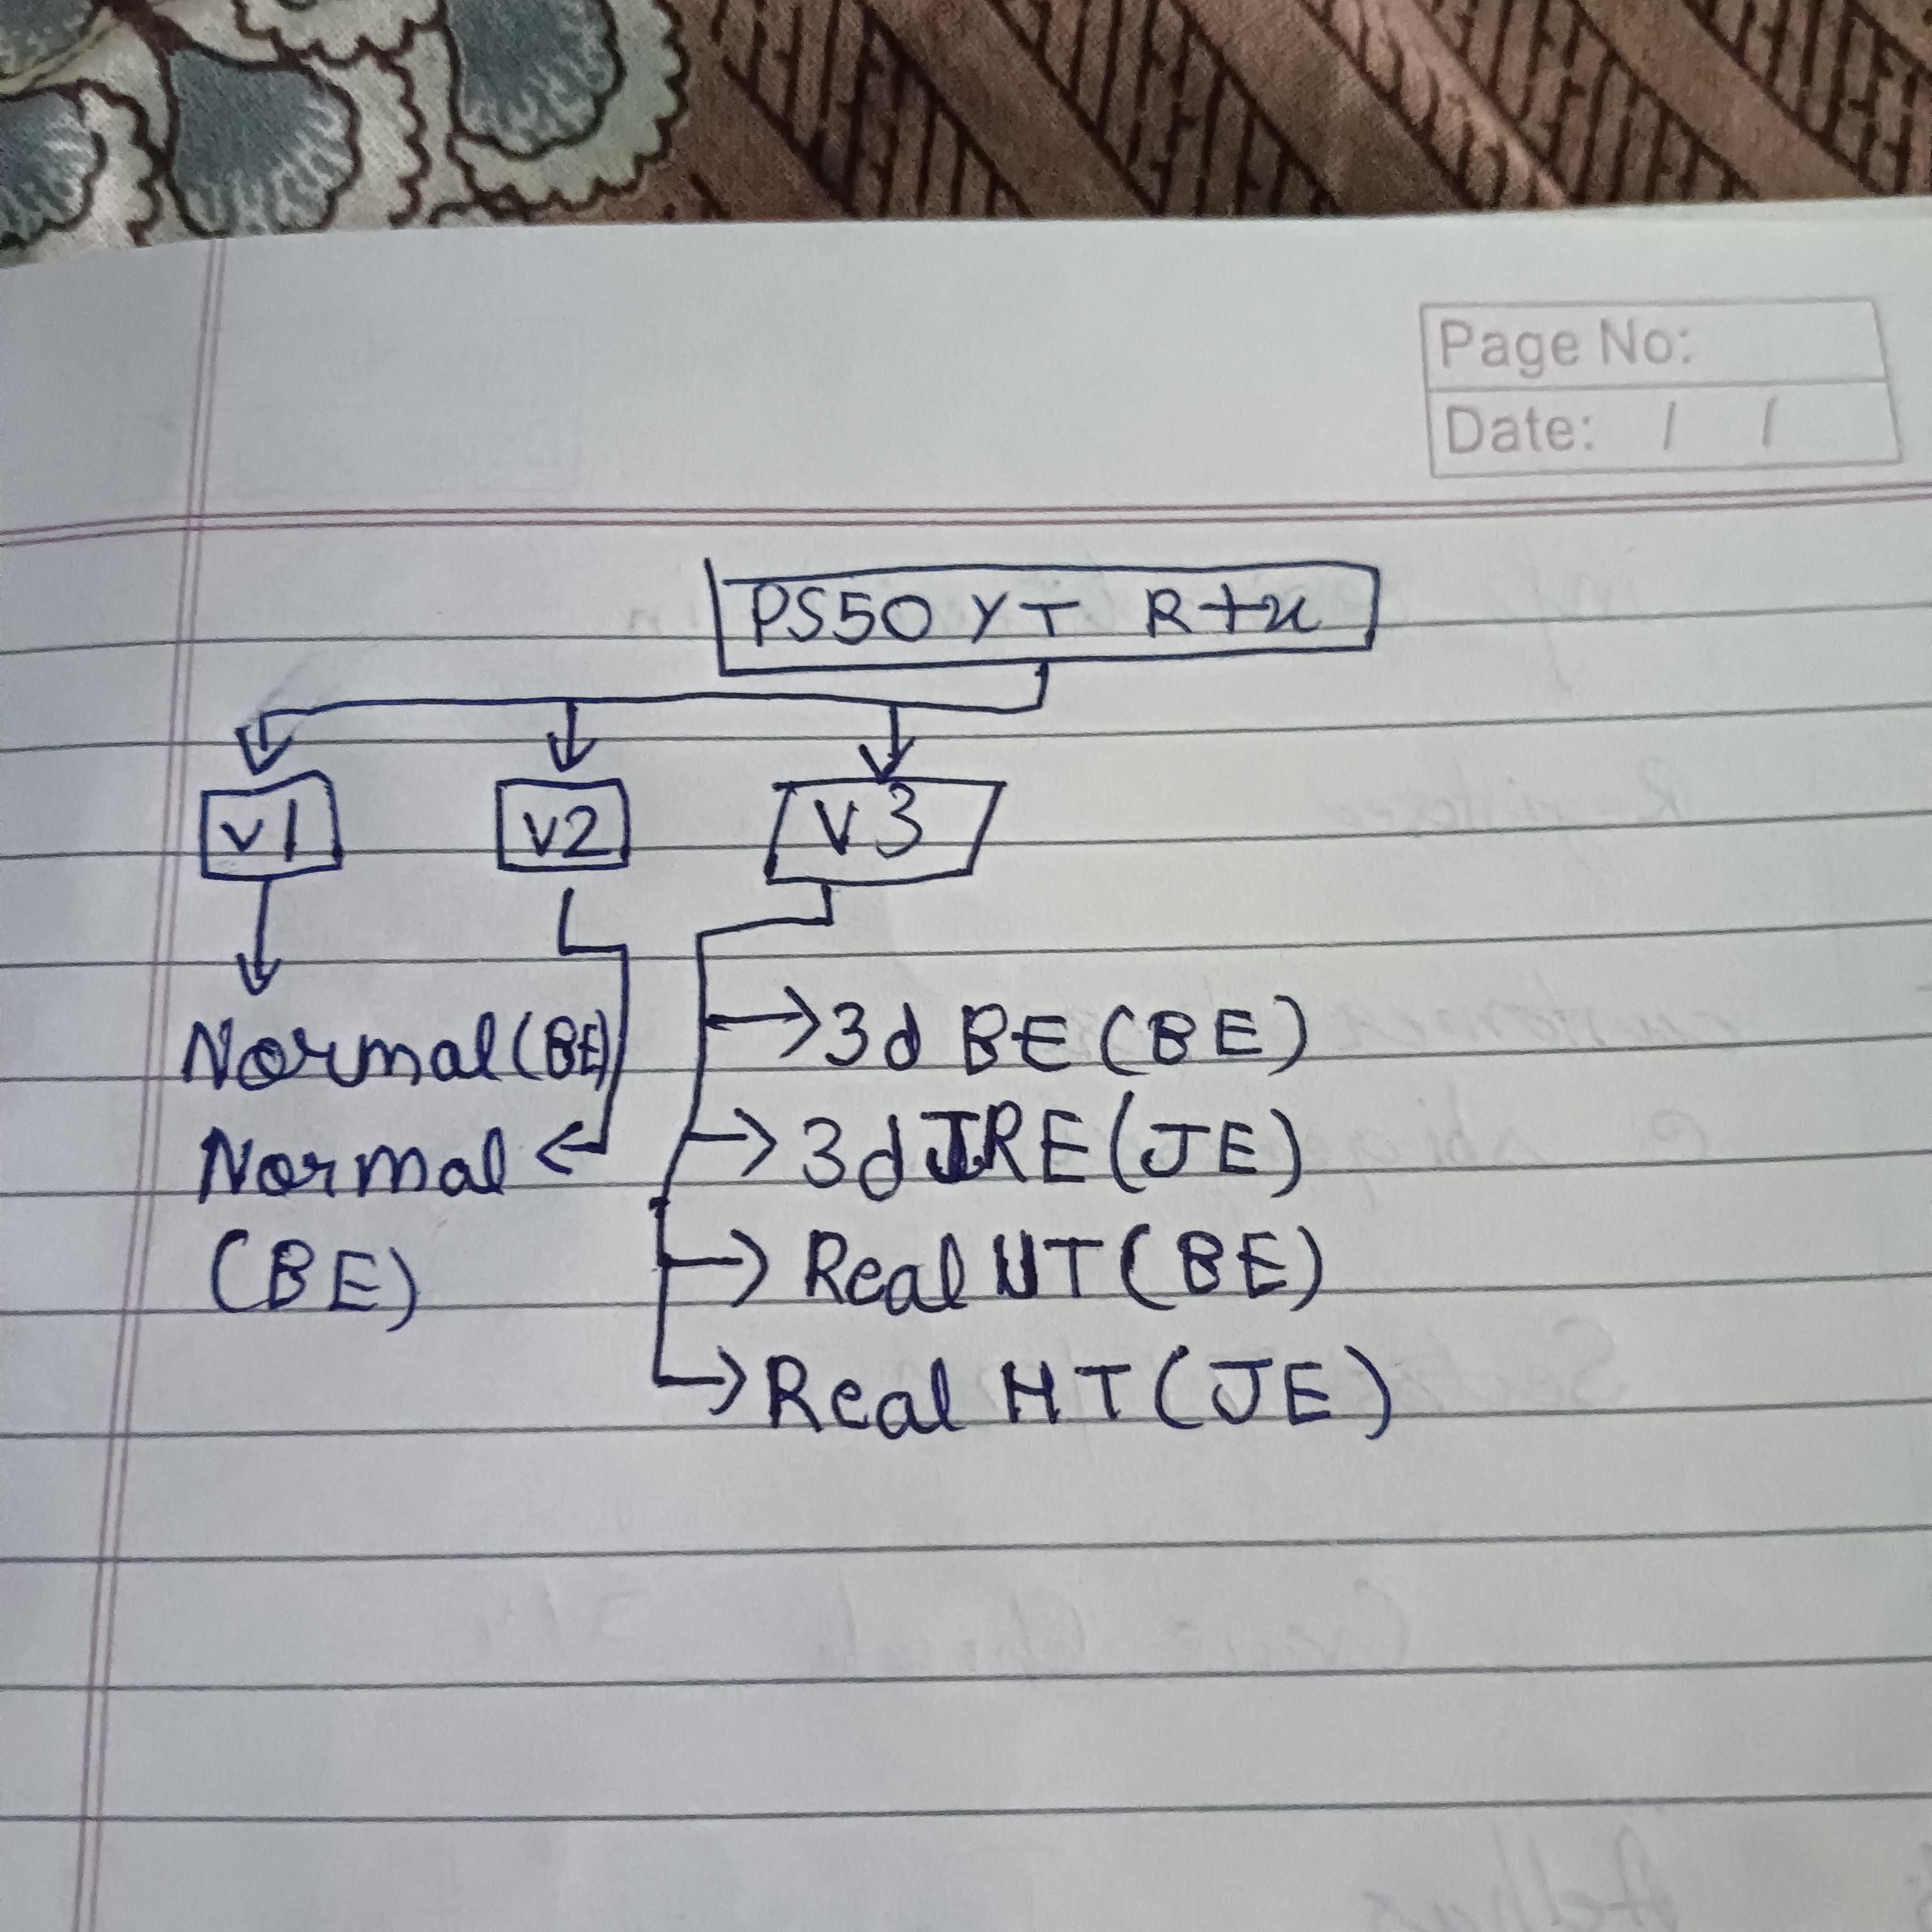 Page No:
Date: / /
PS50 YT R+x
v1 v2 v3
Normal (BE)
Normal
(BE)
3d BE (BE)
3d JRE (JE)
Real HT (BE)
Real HT (JE)